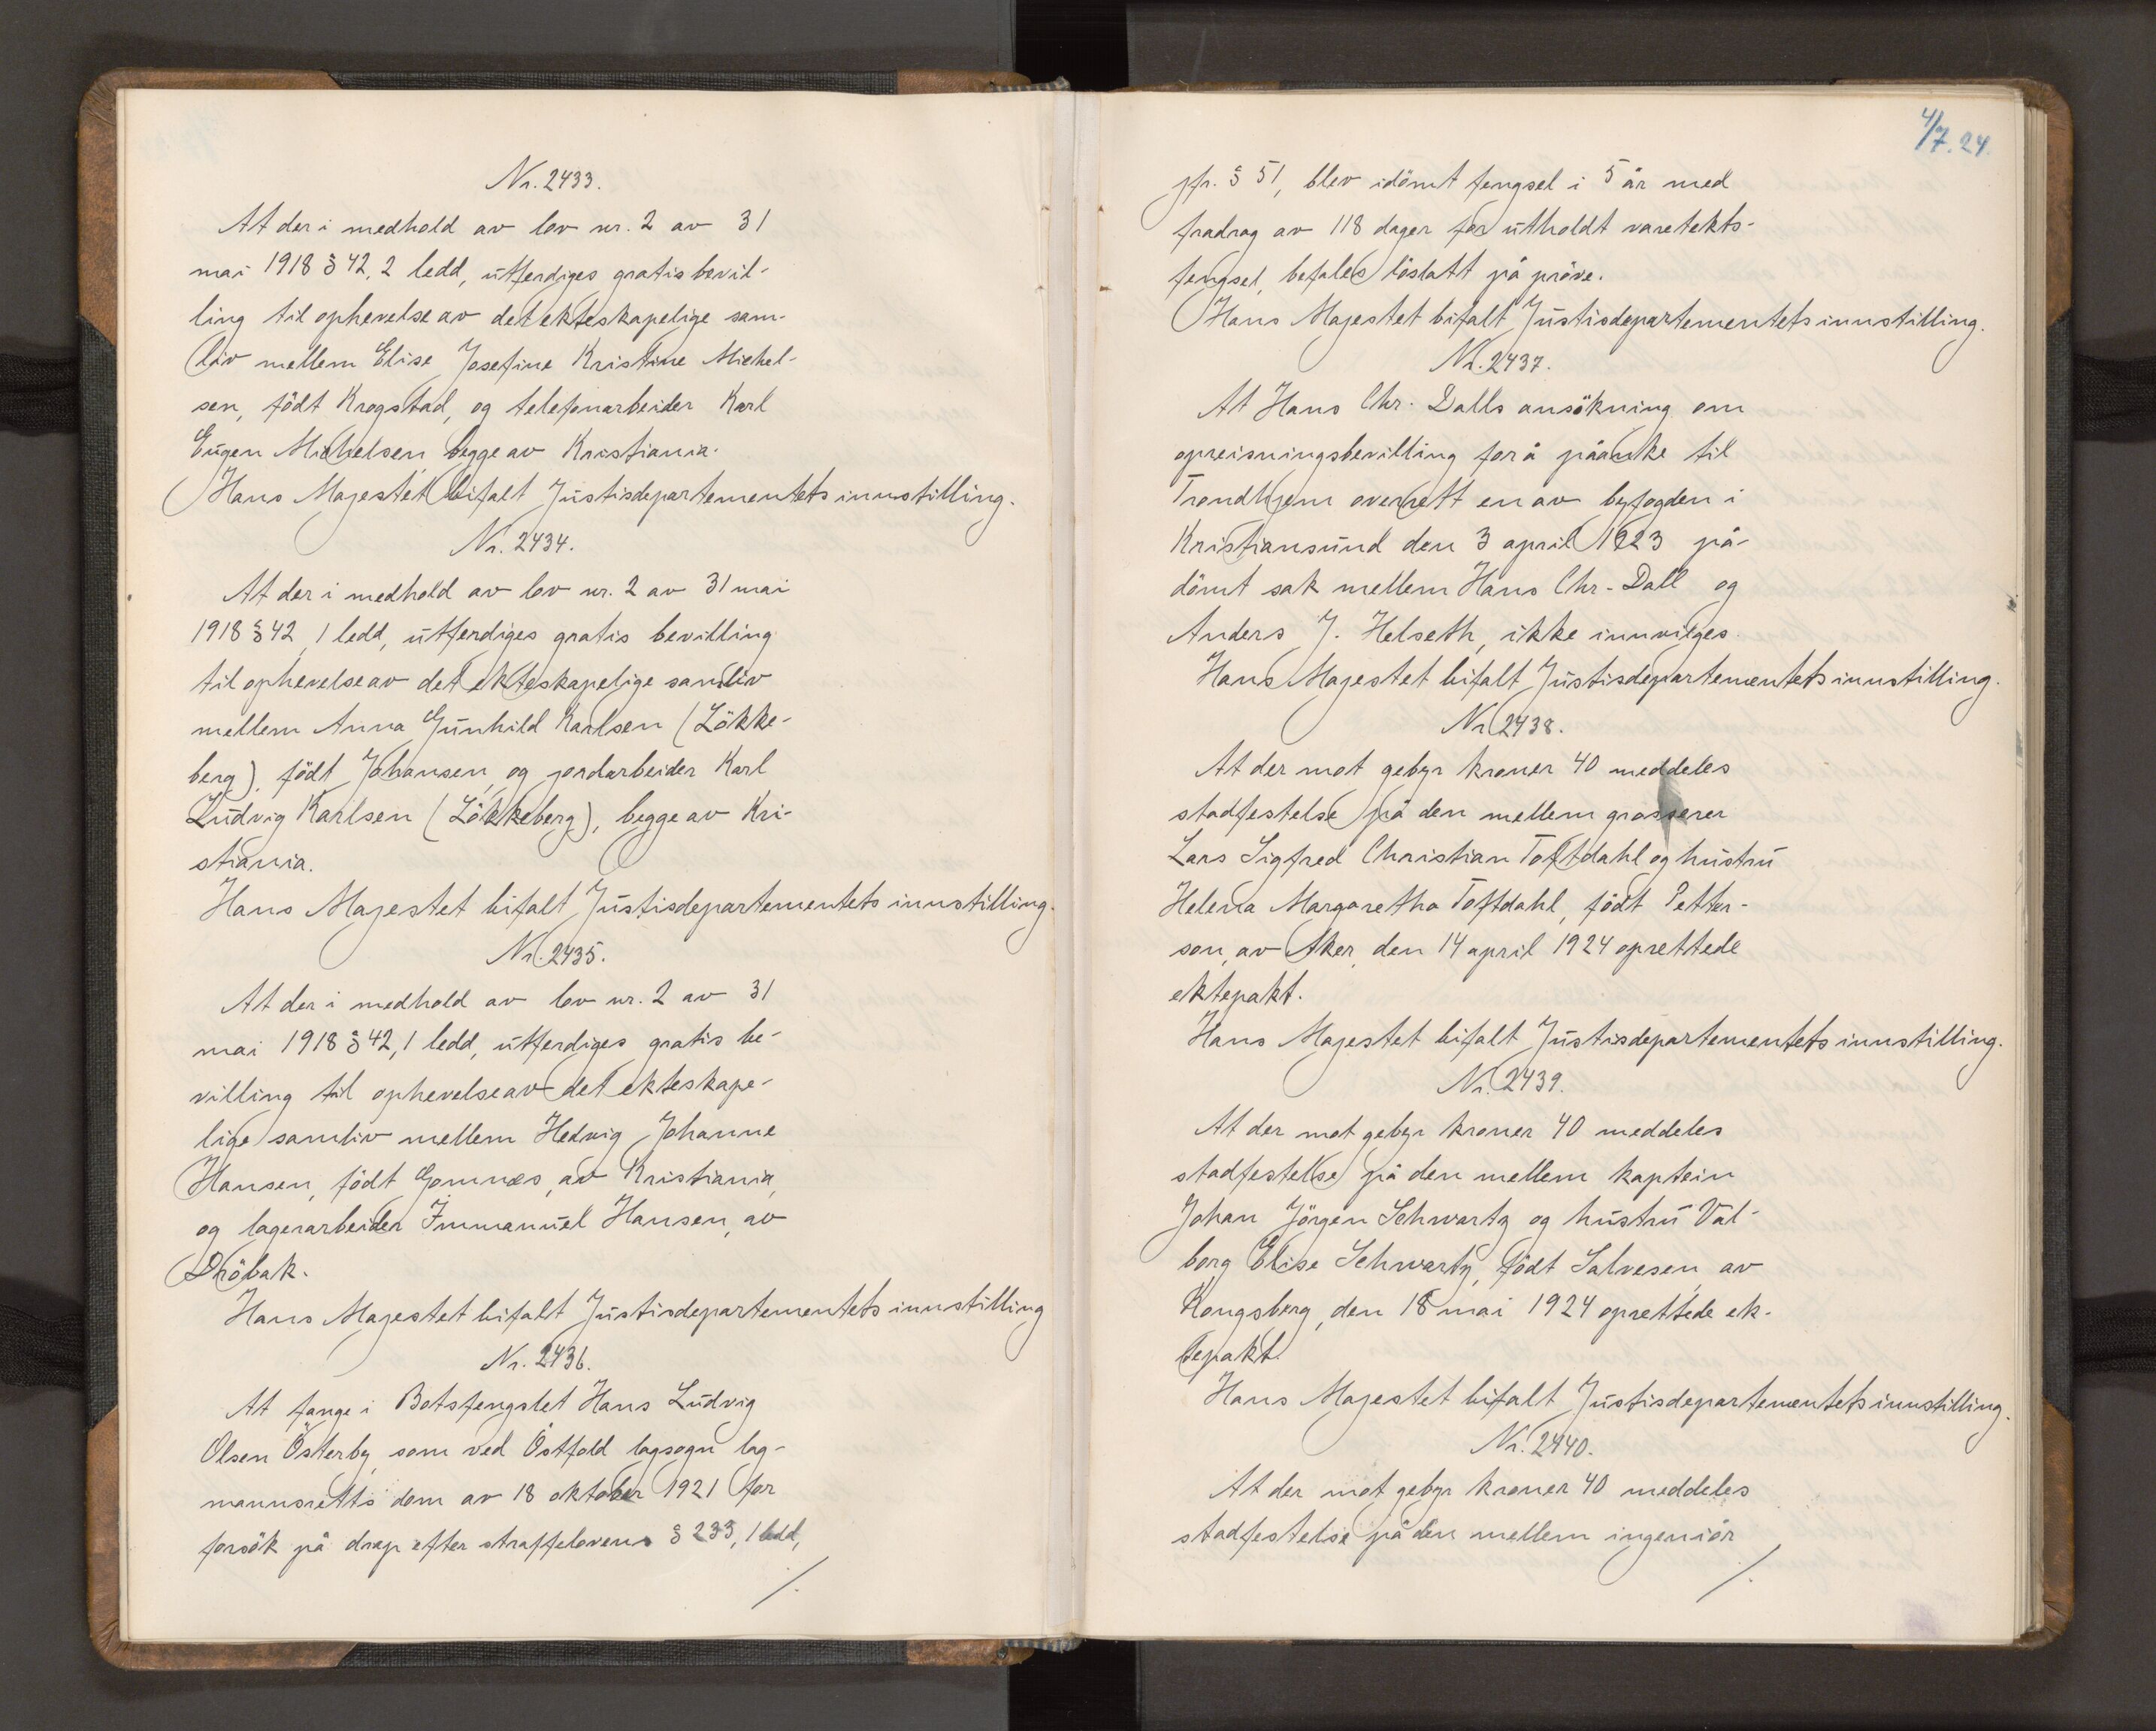 Nr. 2433.
At der i medhold av lov nr. 2 av 31
mai 1918 § 42, 2 ledd, utferdiges gratis bevil-
ling til ophevelse av det ekteskapelige sam-
liv mellem Elise Josefine Kristine Michel-
sen, födt Krogstad, og telefonarbeider Karl
Eugen Michelsen, begge av Kristiania.
Hans Majestet bifalt Justisdepartementets innstilling.
Nr. 2434.
At der i medhold av lov nr. 2 av 31 mai
1918 § 42, 1 ledd, utferdiges gratis bevilling
til ophevelse av det ekteskapelige samliv
mellem Anna Gunhild Karlsen (Lökke-
berg), födt Johansen, og jordarbeider Karl
Ludvig Karlsen (Lökkeberg), begge av Kri-
stiania.
Hans Majestet bifalt Justisdepartementets innstilling.
Nr. 2435.
At der i medhold av lov nr. 2 av 31
mai 1918 § 42, 1 ledd, utferdiges gratis be-
villing til ophevelse av det ekteskape-
lige samliv mellem Hedvig Johanne
Hansen, födt Gomnæs, av Kristiania,
og lagerarbeider Immanuel Hansen, av
Dröbak.
Hans Majestet bifalt Justisdepartementets innstilling
Nr. 2436.
At fange i Botsfengslet Hans Ludvig
Olsen Österby, som ved Östfold lagsogn lag-
mannsretts dom av 18 oktober 1921 for
forsök på drap efter straffelovens § 233, 1 ledd,
/.
4/7.24.
jfr. § 51, blev idömt fengsel i 5 år med
fradrag av 118 dager for utholdt varetekts-
fengsel, befales löslatt på pröve.
Hans Majestet bifalt Justisdepartementets innstilling.
Nr. 2437.
At Hans Chr. Dalls ansökning om
opreisningsbevilling for å påanke til
Trondhjem overrett en av byfogden i
Kristiansund den 3 april 1923 på-
dömt sak mellem Hans Chr. Dall og
Anders J. Helseth, ikke innvilges.
Hans Majestet bifalt Justisdepartementets innstilling.
Nr. 2438.
At der mot gebyr kroner 40 meddeles
stadfestelse på den mellem grosserer
Lars Sigfred Christian Toftdahl og hustru
Helena Margaretha Toftdahl, födt Petter-
son, av Aker, den 14 april 1924 oprettede
ektepakt.
Hans Majestet bifalt Justisdepartementets innstilling.
Nr. 2439.
At der mot gebyr kroner 40 meddeles
stadfestelse på den mellem kaptein
Johan Jörgen Schwartz og hustru Val-
borg Elise Schwartz, födt Salvesen, av
Kongsberg, den 18 mai 1924 oprettede ek-
tepakt.
Hans Majestet bifalt Justisdepartementets innstilling.
Nr. 2440.
At der mot gebyr kroner 40 meddeles
stadfestelse på den mellem ingeniör
/.